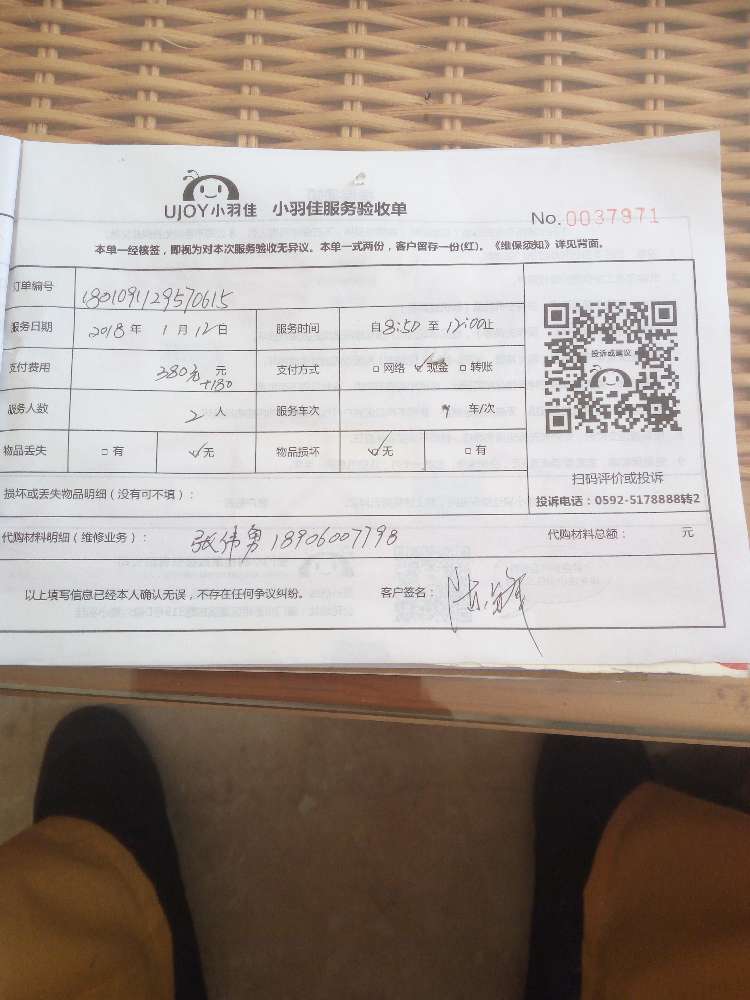 UJOY小羽佳 小羽佳服务验收单
No. 0037971
本单一经核签，即视为对本次服务验收无异议。本单一式两份，客户留存一份(红)。《维保须知》详见背面。
订单编号 1801091129570615
服务日期 2018 年 1 月 12 日 服务时间 自 8:50 至 12:00止
支付费用 380元 元 +180 支付方式 □ 网络 ✓ 现金 □ 转账
服务人数 2 人 服务车次 车/次
物品丢失 □ 有 ✓无 物品损坏 ✓无 □ 有
投诉或建议
扫码评价或投诉
投诉电话：0592-5178888转2
损坏或丢失物品明细（没有可不填）：
代购材料明细（维修业务）： 张伟勇 18906007798 代购材料总额： 元
以上填写信息已经本人确认无误，不存在任何争议纠纷。 客户签名：